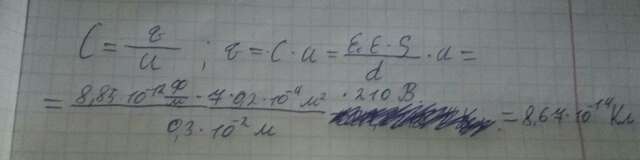 C = q/u ; q = C · u = (ε₀ ε · S)/d · u =
= (8,85·10⁻¹² Ф/м · 7 · 0,2 · 10⁻⁴ м² · 210 В)/(0,3 · 10⁻² м) = 8,67·10⁻¹⁴ Кл